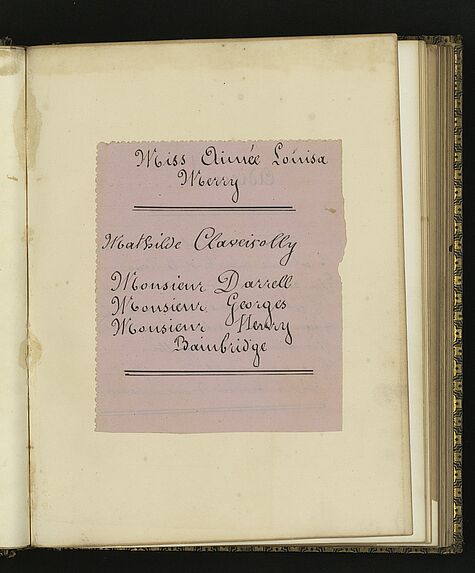 Miss Aimée Louisa
Merry
Mathilde Claveirolly
Monsieur Darrell
Monsieur Georges
Monsieur Henry
Bainbridge